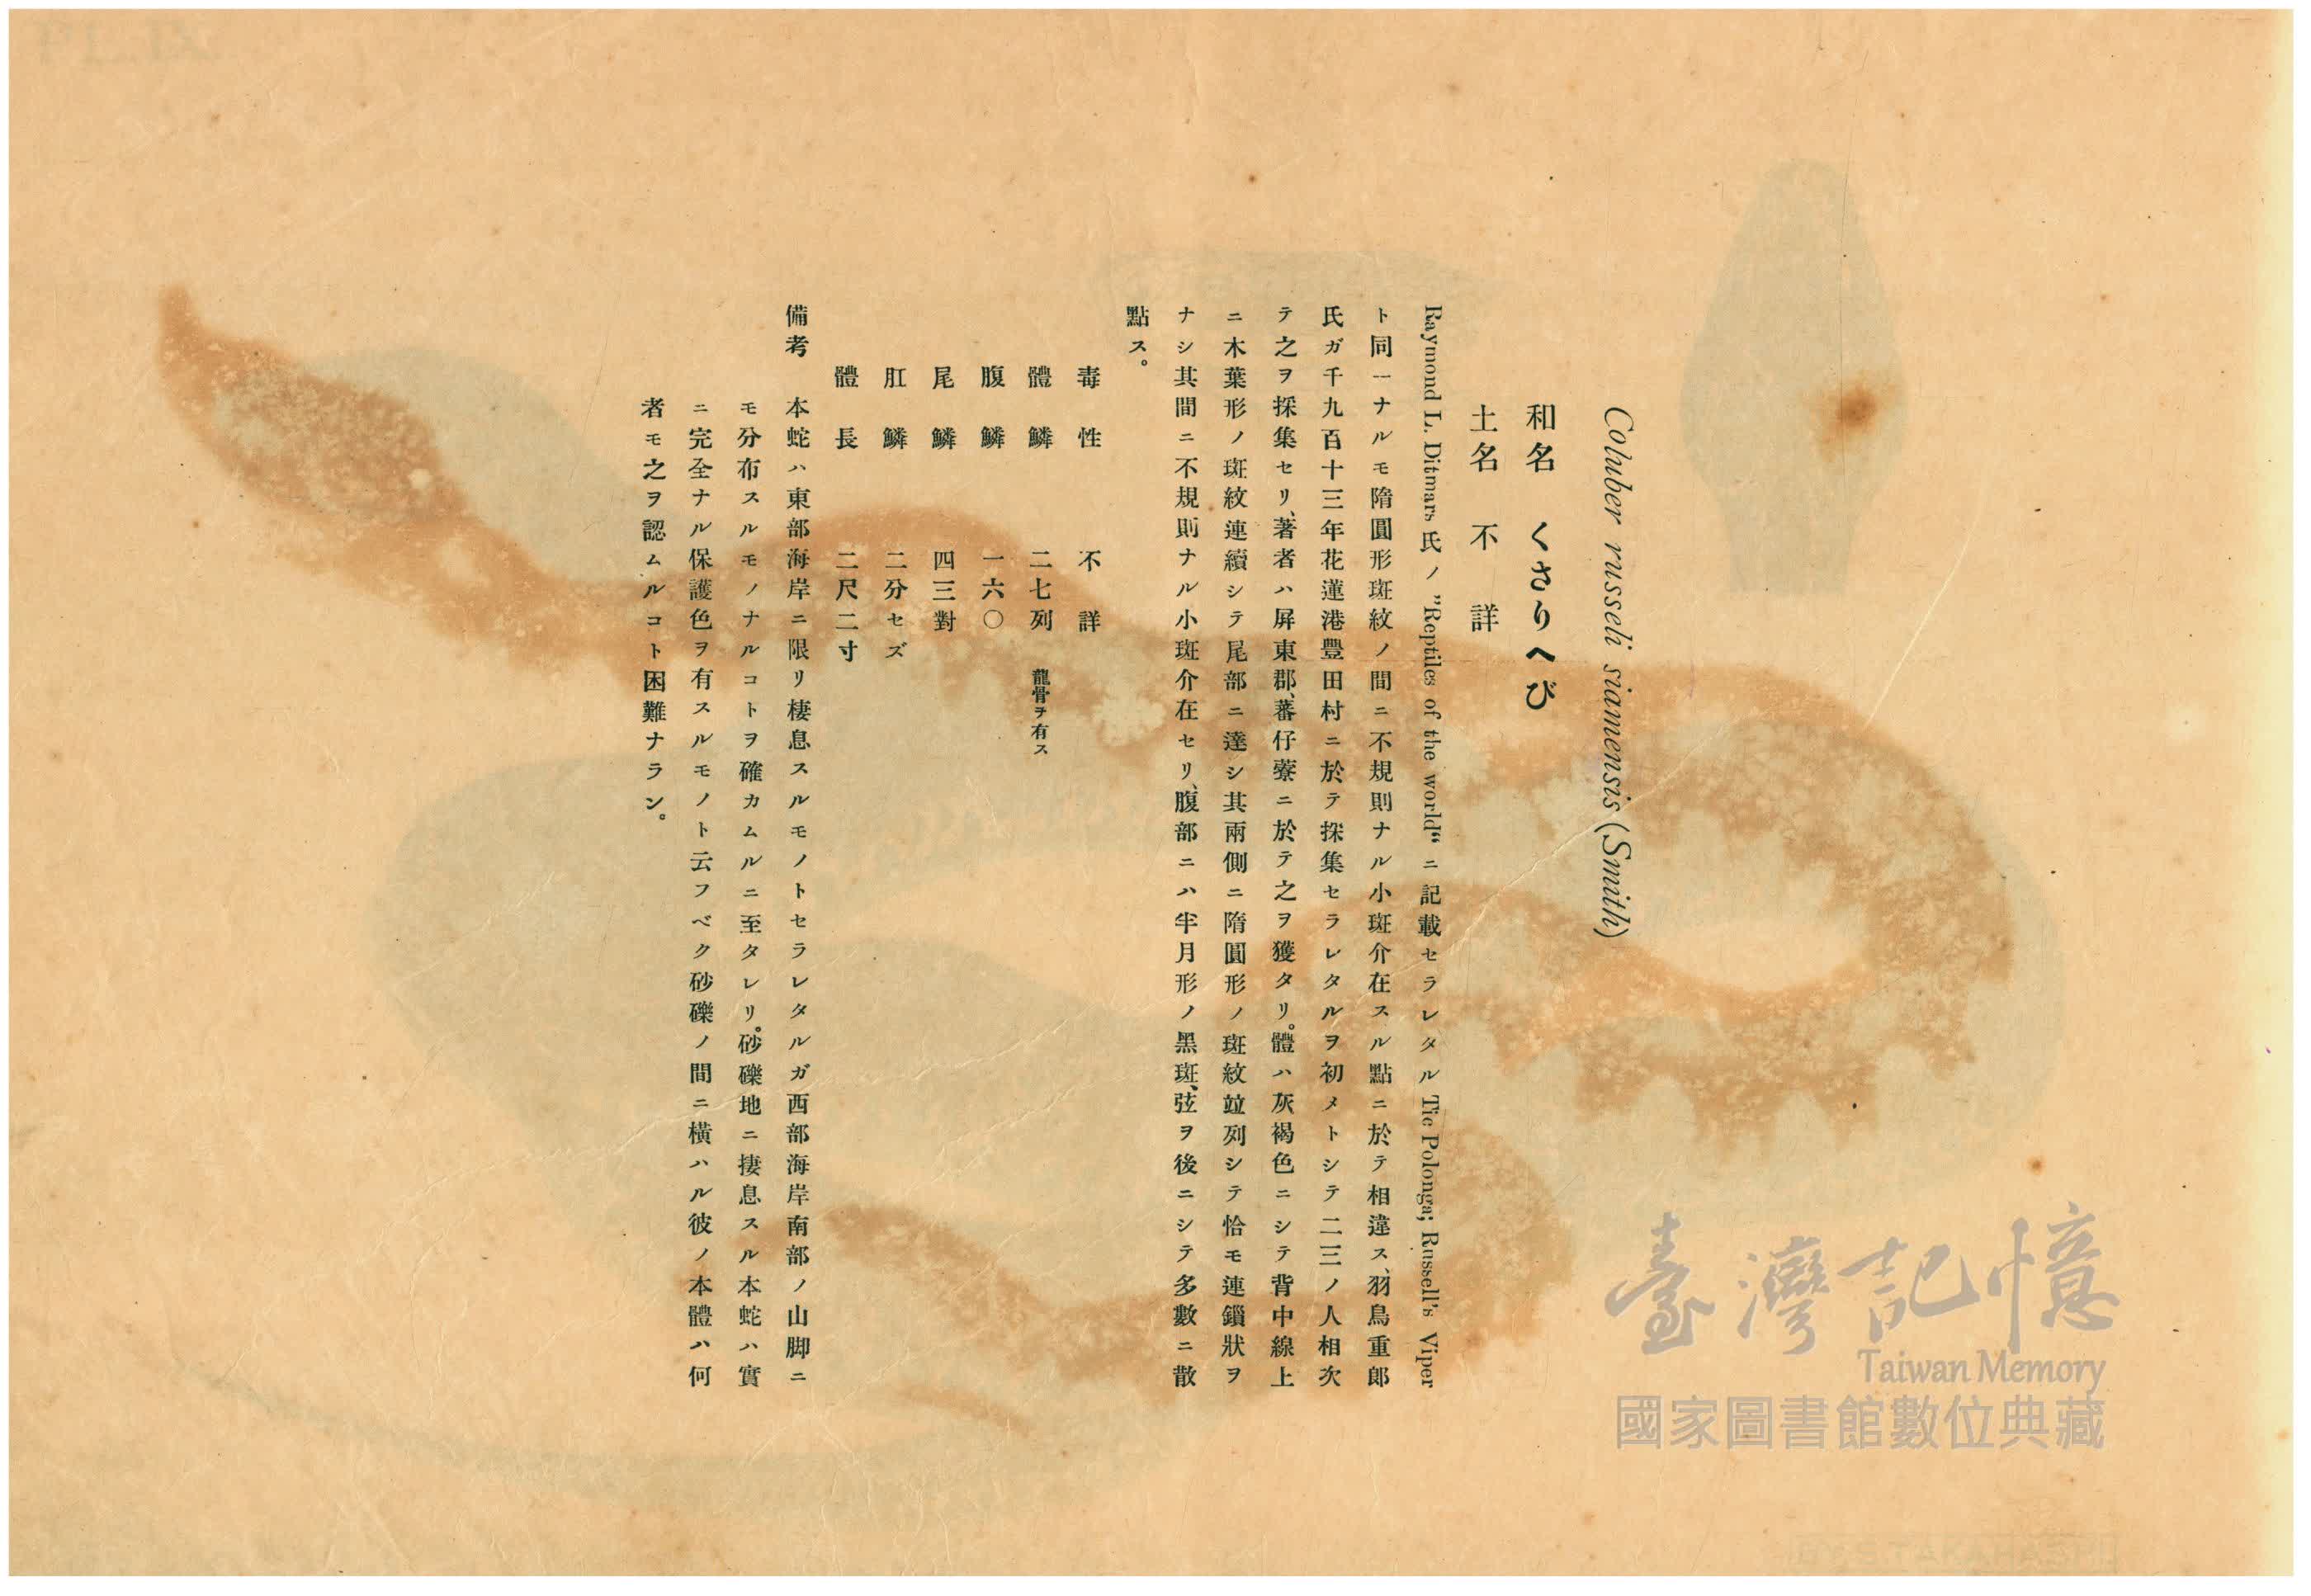 Coluber russeli siamensis (Smith)
和名 くさりへび
土名 不詳
Raymond L. Ditmars 氏ノ "Reptiles of the world" ニ記載セラレタル Tic Polonga; Russell's Viper
ト同一ナルモ隋圓形斑紋ノ間ニ不規則ナル小斑介在スル點ニ於テ相違ス、羽鳥重郎
氏ガ千九百十三年花蓮港豐田村ニ於テ採集セラレタルヲ初メトシテ二三ノ人相次
テ之ヲ採集セリ、著者ハ屏東郡、蕃仔藔ニ於テ之ヲ獲タリ。體ハ灰褐色ニシテ背中線上
ニ木葉形ノ斑紋連續シテ尾部ニ達シ其兩側ニ隋圓形ノ斑紋竝列シテ恰モ連鎖狀ヲ
ナシ其間ニ不規則ナル小斑介在セリ、腹部ニハ半月形ノ黑斑、弦ヲ後ニシテ多數ニ散
點ス。
毒性 不詳
體鱗 二七列 龍骨ヲ有ス
腹鱗 一六〇
尾鱗 四三對
肛鱗 二分セズ
體長 二尺二寸
備考 本蛇ハ東部海岸ニ限リ棲息スルモノトセラレタルガ西部海岸南部ノ山脚ニ
モ分布スルモノナルコトヲ確カムルニ至タレリ。砂礫地ニ捿息スル本蛇ハ實
ニ完全ナル保護色ヲ有スルモノト云フベク砂礫ノ間ニ橫ハル彼ノ本體ハ何
者モ之ヲ認ムルコト困難ナラン。
臺灣記憶
Taiwan Memory
國家圖書館數位典藏